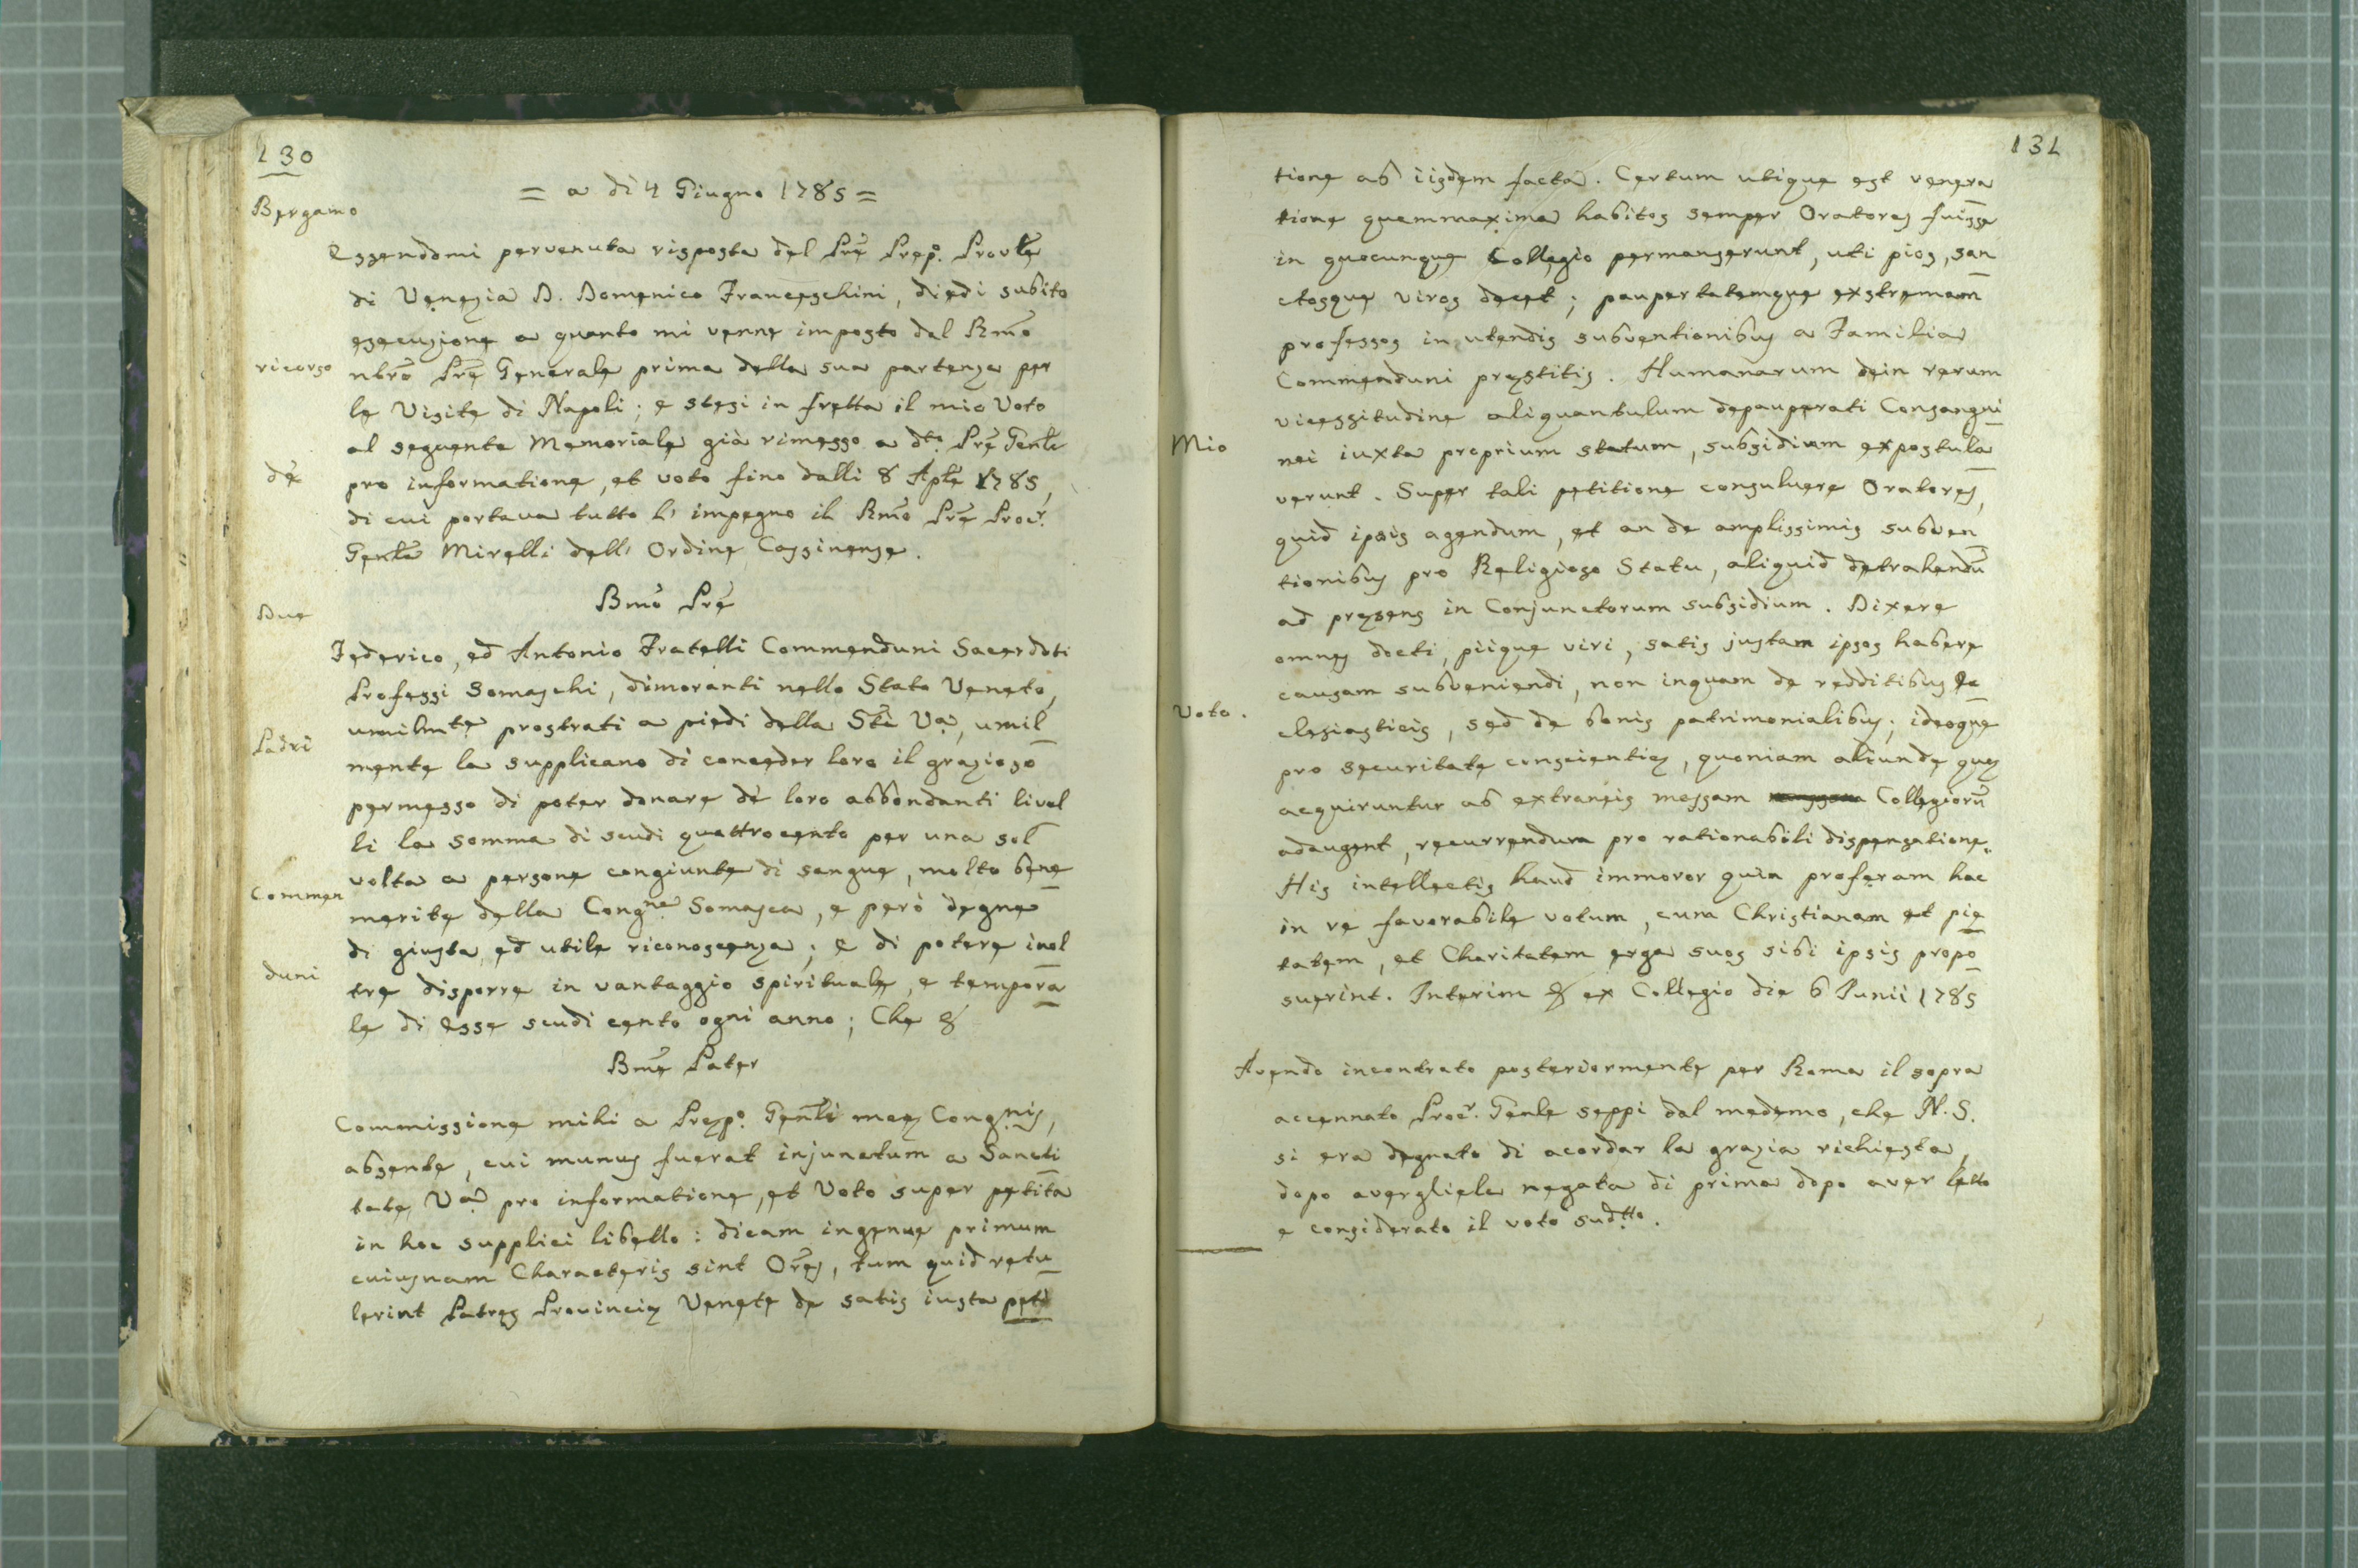 130
= a di 4 Giugno 1785 =
Bergamo
Essendomi pervenuta risposta del Prē Prep.º Provl̄e
di Venezia D. Domenico Franceschini, diedi subito
esecuzione a quanto mi venne imposto dal Rm̄o
ricorso
nbrō Prē Generale prima della sua partenza per
le Visite di Napoli; e stesi in fretta il mio Voto
al seguente Memoriale già rimesso a dtº Prē Genl̄e
dè
pro informatione, et voto fino dalli 8 Aplē 1785,
di cui portava tutto l' impegno il Rm̄o Prē Procr.
Genlē Mirelli dell' Ordine Cassinense.
Due
Bmō Prē
Federico, ed Antonio Fratelli Commenduni Sacerdoti
Professi Somaschi, dimoranti nello Stato Veneto,
umilmte prostrati a piedi della Sti Va, umil
Padri
mente la supplicano di conceder loro il grazioso
permesso di poter donare dè loro abbondanti livel
li la somma di scudi quattrocento per una sol
volta a persone congiunte di sangue, molto bene
Commen
merite della Congne Somasca, e però degne
di giusta, ed utile riconoscenza; e di potere inol
duni
tre disporre in vantaggio spirituale, e tempora
le di esse scudi cento ogni anno; Che &
Bmē Pater
Commissione mihi a Præp.º Genlī meæ Congnis,
absente, cui munus fuerat injunctum a Sancti
tate Va pro informatione, et Voto super petita
in hoc supplici libello: dicam ingenue primum
cuiusnam Characteris sint Orēs, tum quid retu
lerint Patres Provinciæ Venete de satis iusta peti
131
tione ab iisdem facta. Certum utique est venera
tione quammaxima habitos semper Oratores fuisse
in quocunque Collegio permanserunt, uti pios, san
ctosque viros decet; paupertatemque exstremam
professos in utendis subventionibus a Familia
Commenduni præstitis. Humanarum dein rerum
vicessitudine aliquantulum depauperati Consangui
Mio
nei iuxta proprium statum, subsidium expostula
verunt. Super tali petitione consuluere Oratores,
quid ipsis agendum, et an de amplissimis subven
tionibus pro Religioso Statu, aliquid detrahendū
ad præsens in Conjunctorum subsidium. Dixere
omnes docti, piique viri, satis justam ipsos habere
causam subveniendi, non inquam de redditibus Ec
Voto.
clesiasticis, sed de bonis patrimonialibus; ideoque
pro securitate conscientiæ, quoniam aliunde quæ
acquiruntur ab extraneis messam Collegiorū
adaugent, recurrendum pro rationabili dispensatione.
His intellectis haud immoror quin proferam hac
in re favorabile votum, cum Christianam et pie
tatem, et Charitatem erga suos sibi ipsis propo
suerint. Interim & ex Collegio die 6 Junii 1785
Avendo incontrato posteriormente per Roma il sopra
accennato Procr. Genle seppi dal medemo, che N. S.
si era degnato di acordar la grazia richiesta,
dopo avergliela negata di prima dopo aver letto
e considerato il voto sudtto.